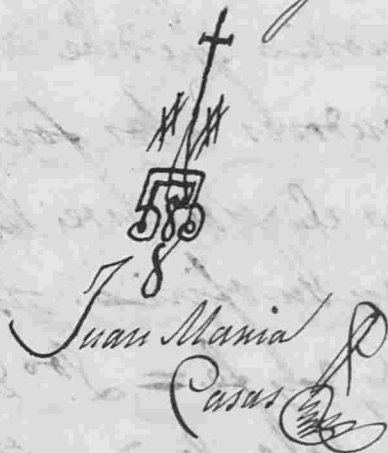 Juan Maria
Casas